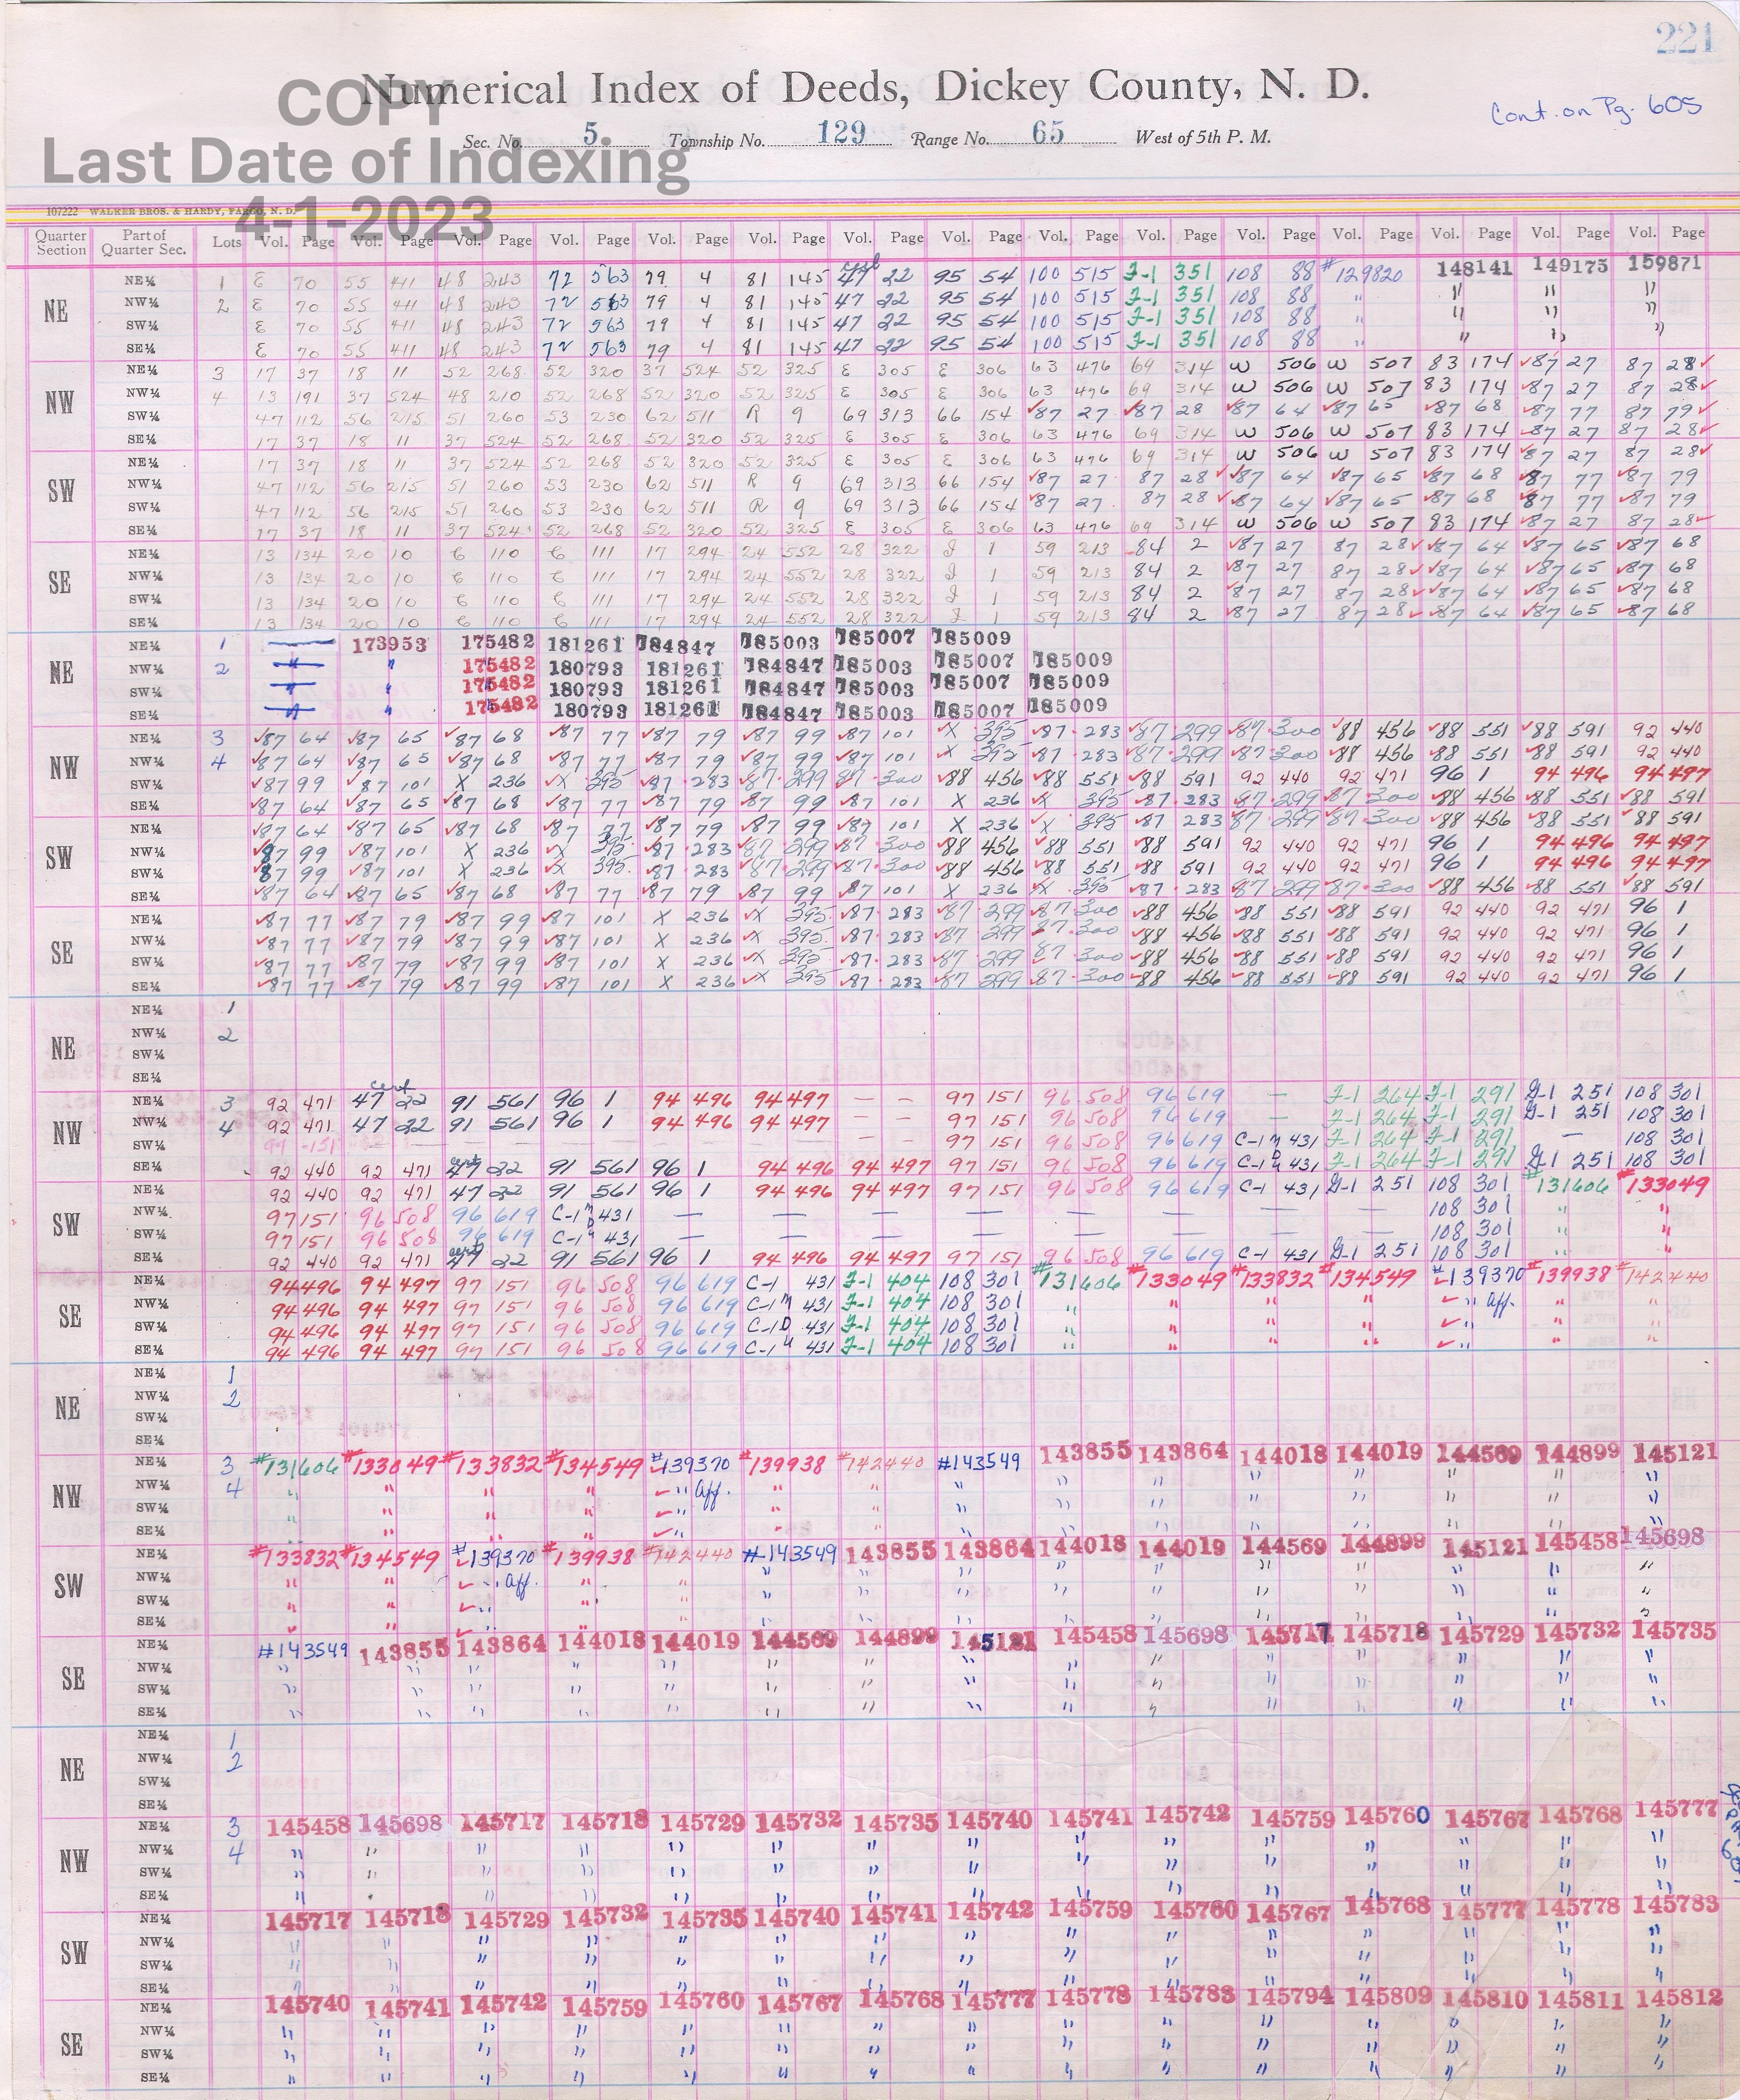 221
Numerical Index of Deeds, Dickey County, N. D.
COPY
Cont. on Pg. 605
Sec. No. 5 Township No. 129 Range No. 65 West of 5th P. M.
Last Date of Indexing
4-1-2023
107222 WALKER BROS. & HARDY, FARGO, N. D.
Quarter Section Part of Quarter Sec. Lots Vol. Page Vol. Page Vol. Page Vol. Page Vol. Page Vol. Page Vol. Page Vol. Page Vol. Page Vol. Page Vol. Page Vol. Page Vol. Page Vol. Page Vol. Page
NE NE¼ 1 E 70 55 411 48 243 72 563 79 4 81 145 47 22 95 54 100 515 J-1 351 108 88 #129820 148141 149175 159871
NW¼ 2 E 70 55 411 48 243 72 563 79 4 81 145 47 22 95 54 100 515 J-1 351 108 88 " " " "
SW¼ E 70 55 411 48 243 72 563 79 4 81 145 47 22 95 54 100 515 J-1 351 108 88 " " " "
SE¼ E 70 55 411 48 243 72 563 79 4 81 145 47 22 95 54 100 515 J-1 351 108 88 " " " "
NW NE¼ 3 17 37 18 11 52 268 52 320 37 524 52 325 E 305 E 306 63 476 69 314 W 506 W 507 83 174 ✓87 27 87 28✓
NW¼ 4 13 191 37 524 48 210 52 268 52 320 52 325 E 305 E 306 63 476 69 314 W 506 W 507 83 174 ✓87 27 87 28✓
SW¼ 47 112 56 215 51 260 53 230 62 511 R 9 69 313 66 154 ✓87 27 ✓87 28 ✓87 64 ✓87 65 ✓87 68 ✓87 77 87 79✓
SE¼ 17 37 18 11 37 524 52 268 52 320 52 325 E 305 E 306 63 476 69 314 W 506 W 507 83 174 ✓87 27 87 28✓
SW NE¼ 17 37 18 11 37 524 52 268 52 320 52 325 E 305 E 306 63 476 69 314 W 506 W 507 83 174 ✓87 27 87 28✓
NW¼ 47 112 56 215 51 260 53 230 62 511 R 9 69 313 66 154 ✓87 27 87 28✓ ✓87 64 ✓87 65 ✓87 68 ✓87 77 ✓87 79
SW¼ 47 112 56 215 51 260 53 230 62 511 R 9 69 313 66 154 ✓87 27 87 28✓ ✓87 64 ✓87 65 ✓87 68 ✓87 77 ✓87 79
SE¼ 17 37 18 11 37 524 52 268 52 320 52 325 E 305 E 306 63 476 69 314 W 506 W 507 83 174 ✓87 27 87 28✓
SE NE¼ 13 134 20 10 C 110 C 111 17 294 24 552 28 322 J 1 59 213 84 2 ✓87 27 87 28✓ ✓87 64 ✓87 65 ✓87 68
NW¼ 13 134 20 10 C 110 C 111 17 294 24 552 28 322 J 1 59 213 84 2 ✓87 27 87 28✓ ✓87 64 ✓87 65 ✓87 68
SW¼ 13 134 20 10 C 110 C 111 17 294 24 552 28 322 J 1 59 213 84 2 ✓87 27 87 28✓ ✓87 64 ✓87 65 ✓87 68
SE¼ 13 134 20 10 C 110 C 111 17 294 24 552 28 322 J 1 59 213 84 2 ✓87 27 87 28✓ ✓87 64 ✓87 65 ✓87 68
NE NE¼ 1 173953 175482 181261 184847 185003 185007 185009
NW¼ 2 " " 175482 180793 181261 184847 185003 185007 185009
SW¼ " " 175482 180793 181261 184847 185003 185007 185009
SE¼ " " 175482 180793 181261 184847 185003 185007 185009
NW NE¼ 3 ✓87 64 ✓87 65 ✓87 68 ✓87 77 ✓87 79 ✓87 99 ✓87 101 ✓X 395 ✓87 283 ✓87 299 ✓87 300 ✓88 456 ✓88 551 ✓88 591 92 440
NW¼ 4 ✓87 64 ✓87 65 ✓87 68 ✓87 77 ✓87 79 ✓87 99 ✓87 101 ✓X 395 ✓87 283 ✓87 299 ✓87 300 ✓88 456 ✓88 551 ✓88 591 92 440
SW¼ ✓87 99 ✓87 101 X 236 ✓X 395 ✓87 283 ✓87 299 87 300 ✓88 456 ✓88 551 ✓88 591 92 440 92 471 96 1 94 496 94 497
SE¼ ✓87 64 ✓87 65 ✓87 68 ✓87 77 ✓87 79 ✓87 99 ✓87 101 X 236 ✓X 395 ✓87 283 ✓87 299 ✓87 300 ✓88 456 ✓88 551 ✓88 591
SW NE¼ ✓87 64 ✓87 65 ✓87 68 ✓87 77 ✓87 79 ✓87 99 ✓87 101 X 236 ✓X 395 ✓87 283 ✓87 299 ✓87 300 ✓88 456 ✓88 551 ✓88 591
NW¼ ✓87 99 ✓87 101 X 236 ✓X 395 ✓87 283 ✓87 299 ✓87 300 ✓88 456 ✓88 551 ✓88 591 92 440 92 471 96 1 94 496 94 497
SW¼ ✓87 99 ✓87 101 X 236 ✓X 395 ✓87 283 ✓87 299 ✓87 300 ✓88 456 ✓88 551 ✓88 591 92 440 92 471 96 1 94 496 94 497
SE¼ ✓87 64 ✓87 65 ✓87 68 ✓87 77 ✓87 79 ✓87 99 ✓87 101 X 236 ✓X 395 ✓87 283 ✓87 299 ✓87 300 ✓88 456 ✓88 551 ✓88 591
SE NE¼ ✓87 77 ✓87 79 ✓87 99 ✓87 101 X 236 ✓X 395 ✓87 283 ✓87 299 ✓87 300 ✓88 456 ✓88 551 ✓88 591 92 440 92 471 96 1
NW¼ ✓87 77 ✓87 79 ✓87 99 ✓87 101 X 236 ✓X 395 ✓87 283 ✓87 299 ✓87 300 ✓88 456 ✓88 551 ✓88 591 92 440 92 471 96 1
SW¼ ✓87 77 ✓87 79 ✓87 99 ✓87 101 X 236 ✓X 395 ✓87 283 ✓87 299 ✓87 300 ✓88 456 ✓88 551 ✓88 591 92 440 92 471 96 1
SE¼ ✓87 77 ✓87 79 ✓87 99 ✓87 101 X 236 ✓X 395 ✓87 283 ✓87 299 ✓87 300 ✓88 456 ✓88 551 ✓88 591 92 440 92 471 96 1
NE NE¼ 1
NW¼ 2
SW¼
SE¼
cert
NW NE¼ 3 92 471 47 22 91 561 96 1 94 496 94 497 — — 97 151 96 508 96 619 — J-1 264 J-1 291 G-1 251 108 301
NW¼ 4 92 471 47 22 91 561 96 1 94 496 94 497 97 151 96 508 96 619 J-1 264 J-1 291 G-1 251 108 301
SW¼ 97 151 — — — — — — 97 151 96 508 96 619 C-1 431 J-1 264 J-1 291 — 108 301
SE¼ 92 440 92 471 47 22 91 561 96 1 94 496 94 497 97 151 96 508 96 619 C-1 431 J-1 264 J-1 291 G-1 251 108 301
SW NE¼ 92 440 92 471 47 22 91 561 96 1 94 496 94 497 97 151 96 508 96 619 C-1 431 G-1 251 108 301 #131606 #133049
NW¼ 97 151 96 508 96 619 C-1 431 — — — — — — — — 108 301 " "
SW¼ 97 151 96 508 96 619 C-1 431 — — — — — — — — 108 301 " "
SE¼ 92 440 92 471 47 22 91 561 96 1 94 496 94 497 97 151 96 508 96 619 C-1 431 G-1 251 108 301 " "
SE NE¼ 94 496 94 497 97 151 96 508 96 619 C-1 431 J-1 404 108 301 #131606 #133049 #133832 #134549 ✓#139370 #139938 #142440
NW¼ 94 496 94 497 97 151 96 508 96 619 C-1 M 431 J-1 404 108 301 " " " " ✓ " Aff. " "
SW¼ 94 496 94 497 97 151 96 508 96 619 C-1 D 431 J-1 404 108 301 " " " " ✓ " " "
SE¼ 94 496 94 497 97 151 96 508 96 619 C-1 431 J-1 404 108 301 " " " " ✓ " " "
NE NE¼ 1
NW¼ 2
SW¼
SE¼
NW NE¼ 3 #131606 #133049 #133832 #134549 ✓#139370 #139938 #142440 #143549 143855 143864 144018 144019 144569 144899 145121
NW¼ 4 " " " " ✓ " Aff. " " " " " " " " " "
SW¼ " " " " ✓ " " " " " " " " " " "
SE¼ " " " " ✓ " " " " " " " " " " "
SW NE¼ #133832 #134549 ✓#139370 #139938 #142440 #143549 143855 143864 144018 144019 144569 144899 145121 145458 145698
NW¼ " " ✓ " Aff. " " " " " " " " " " " "
SW¼ " " ✓ " " " " " " " " " " " " "
SE¼ " " ✓ " " " " " " " " " " " " "
SE NE¼ #143549 143855 143864 144018 144019 144569 144899 145121 145458 145698 145717 145718 145729 145732 145735
NW¼ " " " " " " " " " " " " " " "
SW¼ " " " " " " " " " " " " " " "
SE¼ " " " " " " " " " " " " " " "
NE NE¼ 1
NW¼ 2
SW¼
SE¼
NW NE¼ 3 145458 145698 145717 145718 145729 145732 145735 145740 145741 145742 145759 145760 145767 145768 145777
NW¼ 4 " " " " " " " " " " " " " " "
SW¼ " " " " " " " " " " " " " " "
SE¼ " " " " " " " " " " " " " " "
SW NE¼ 145717 145718 145729 145732 145735 145740 145741 145742 145759 145760 145767 145768 145777 145778 145783
NW¼ " " " " " " " " " " " " " " "
SW¼ " " " " " " " " " " " " " " "
SE¼ " " " " " " " " " " " " " " "
SE NE¼ 145740 145741 145742 145759 145760 145767 145768 145777 145778 145783 145794 145809 145810 145811 145812
NW¼ " " " " " " " " " " " " " " "
SW¼ " " " " " " " " " " " " " " "
SE¼ " " " " " " " " " " " " " " "